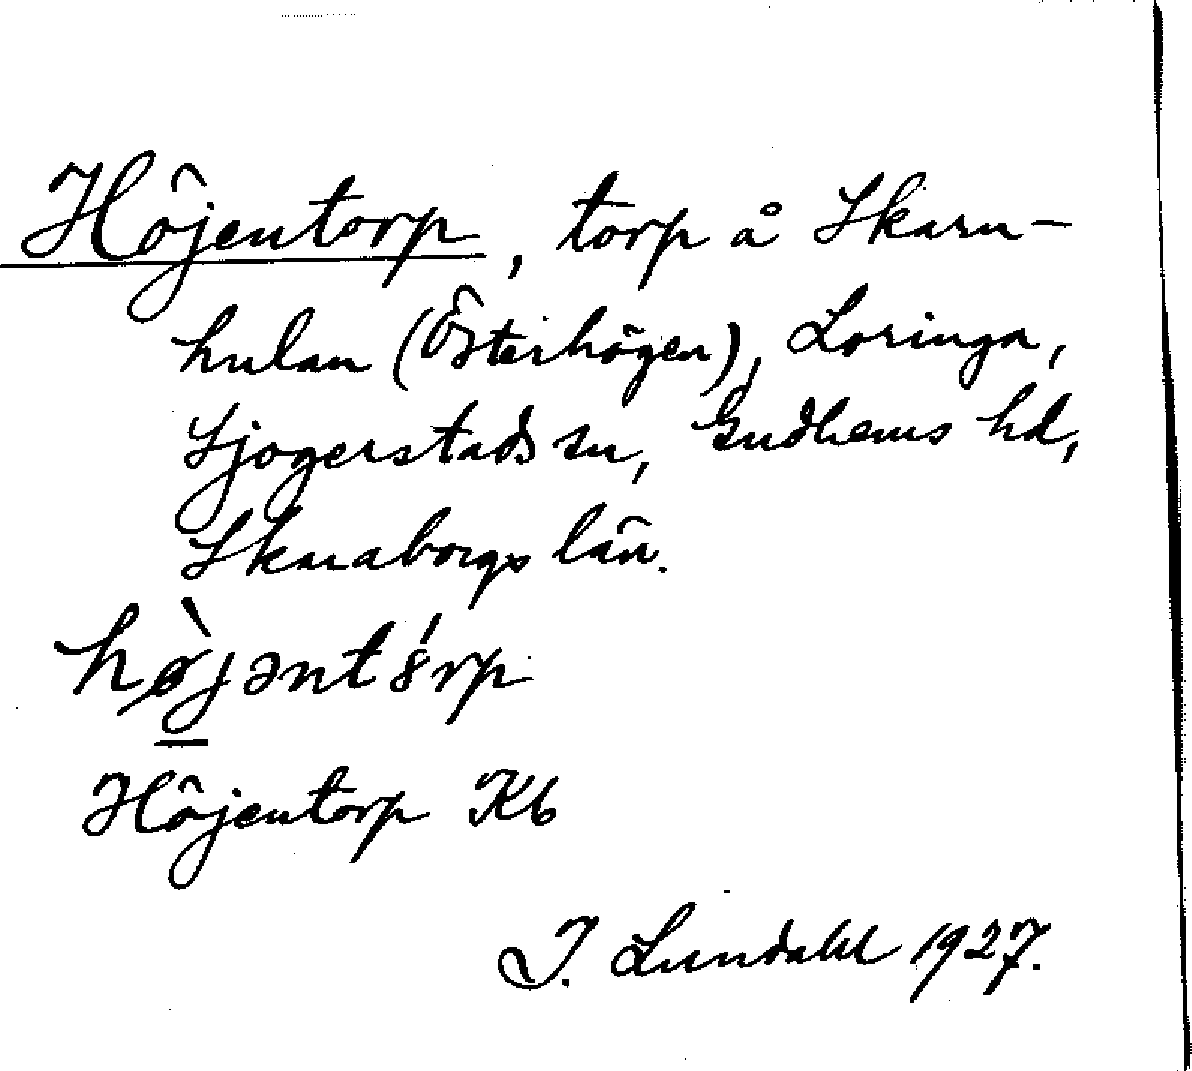 Höjentorp, torp å Skarn-
hulan (Österhögen), Loringa,
Sjogerstads sn, Gudhems hd,
Skaraborgs län.
hø̀jəntȣ́rp
Höjentorp Kb
I. Lundahl 1927.